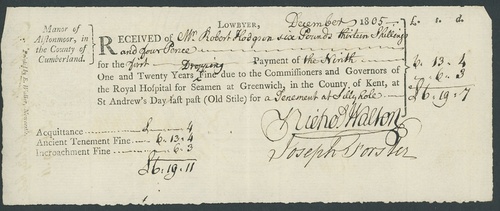 LOWBYER, December 1805.
£. s. d.
Manor of
Alstonmoor, in
the County of
Cumberland.
RECEIVED of Mr. Robert Hodgson six Pounds thirteen Shillings
and four Pence
for the first Dropping Payment of the Ninth
6. 13. 4
One and Twenty Years Fine due to the Commissioners and Governors of
6. 3
the Royal Hospital for Seamen at Greenwich, in the County of Kent, at
£6. 19. 7
St Andrew's Day last past (Old Stile) for a Tenement at
Acquittance £ 4
Ancient Tenement Fine 6. 13. 4
Incroachment Fine 6. 3
£6. 19. 11
Nichos. Walton
Joseph Forster